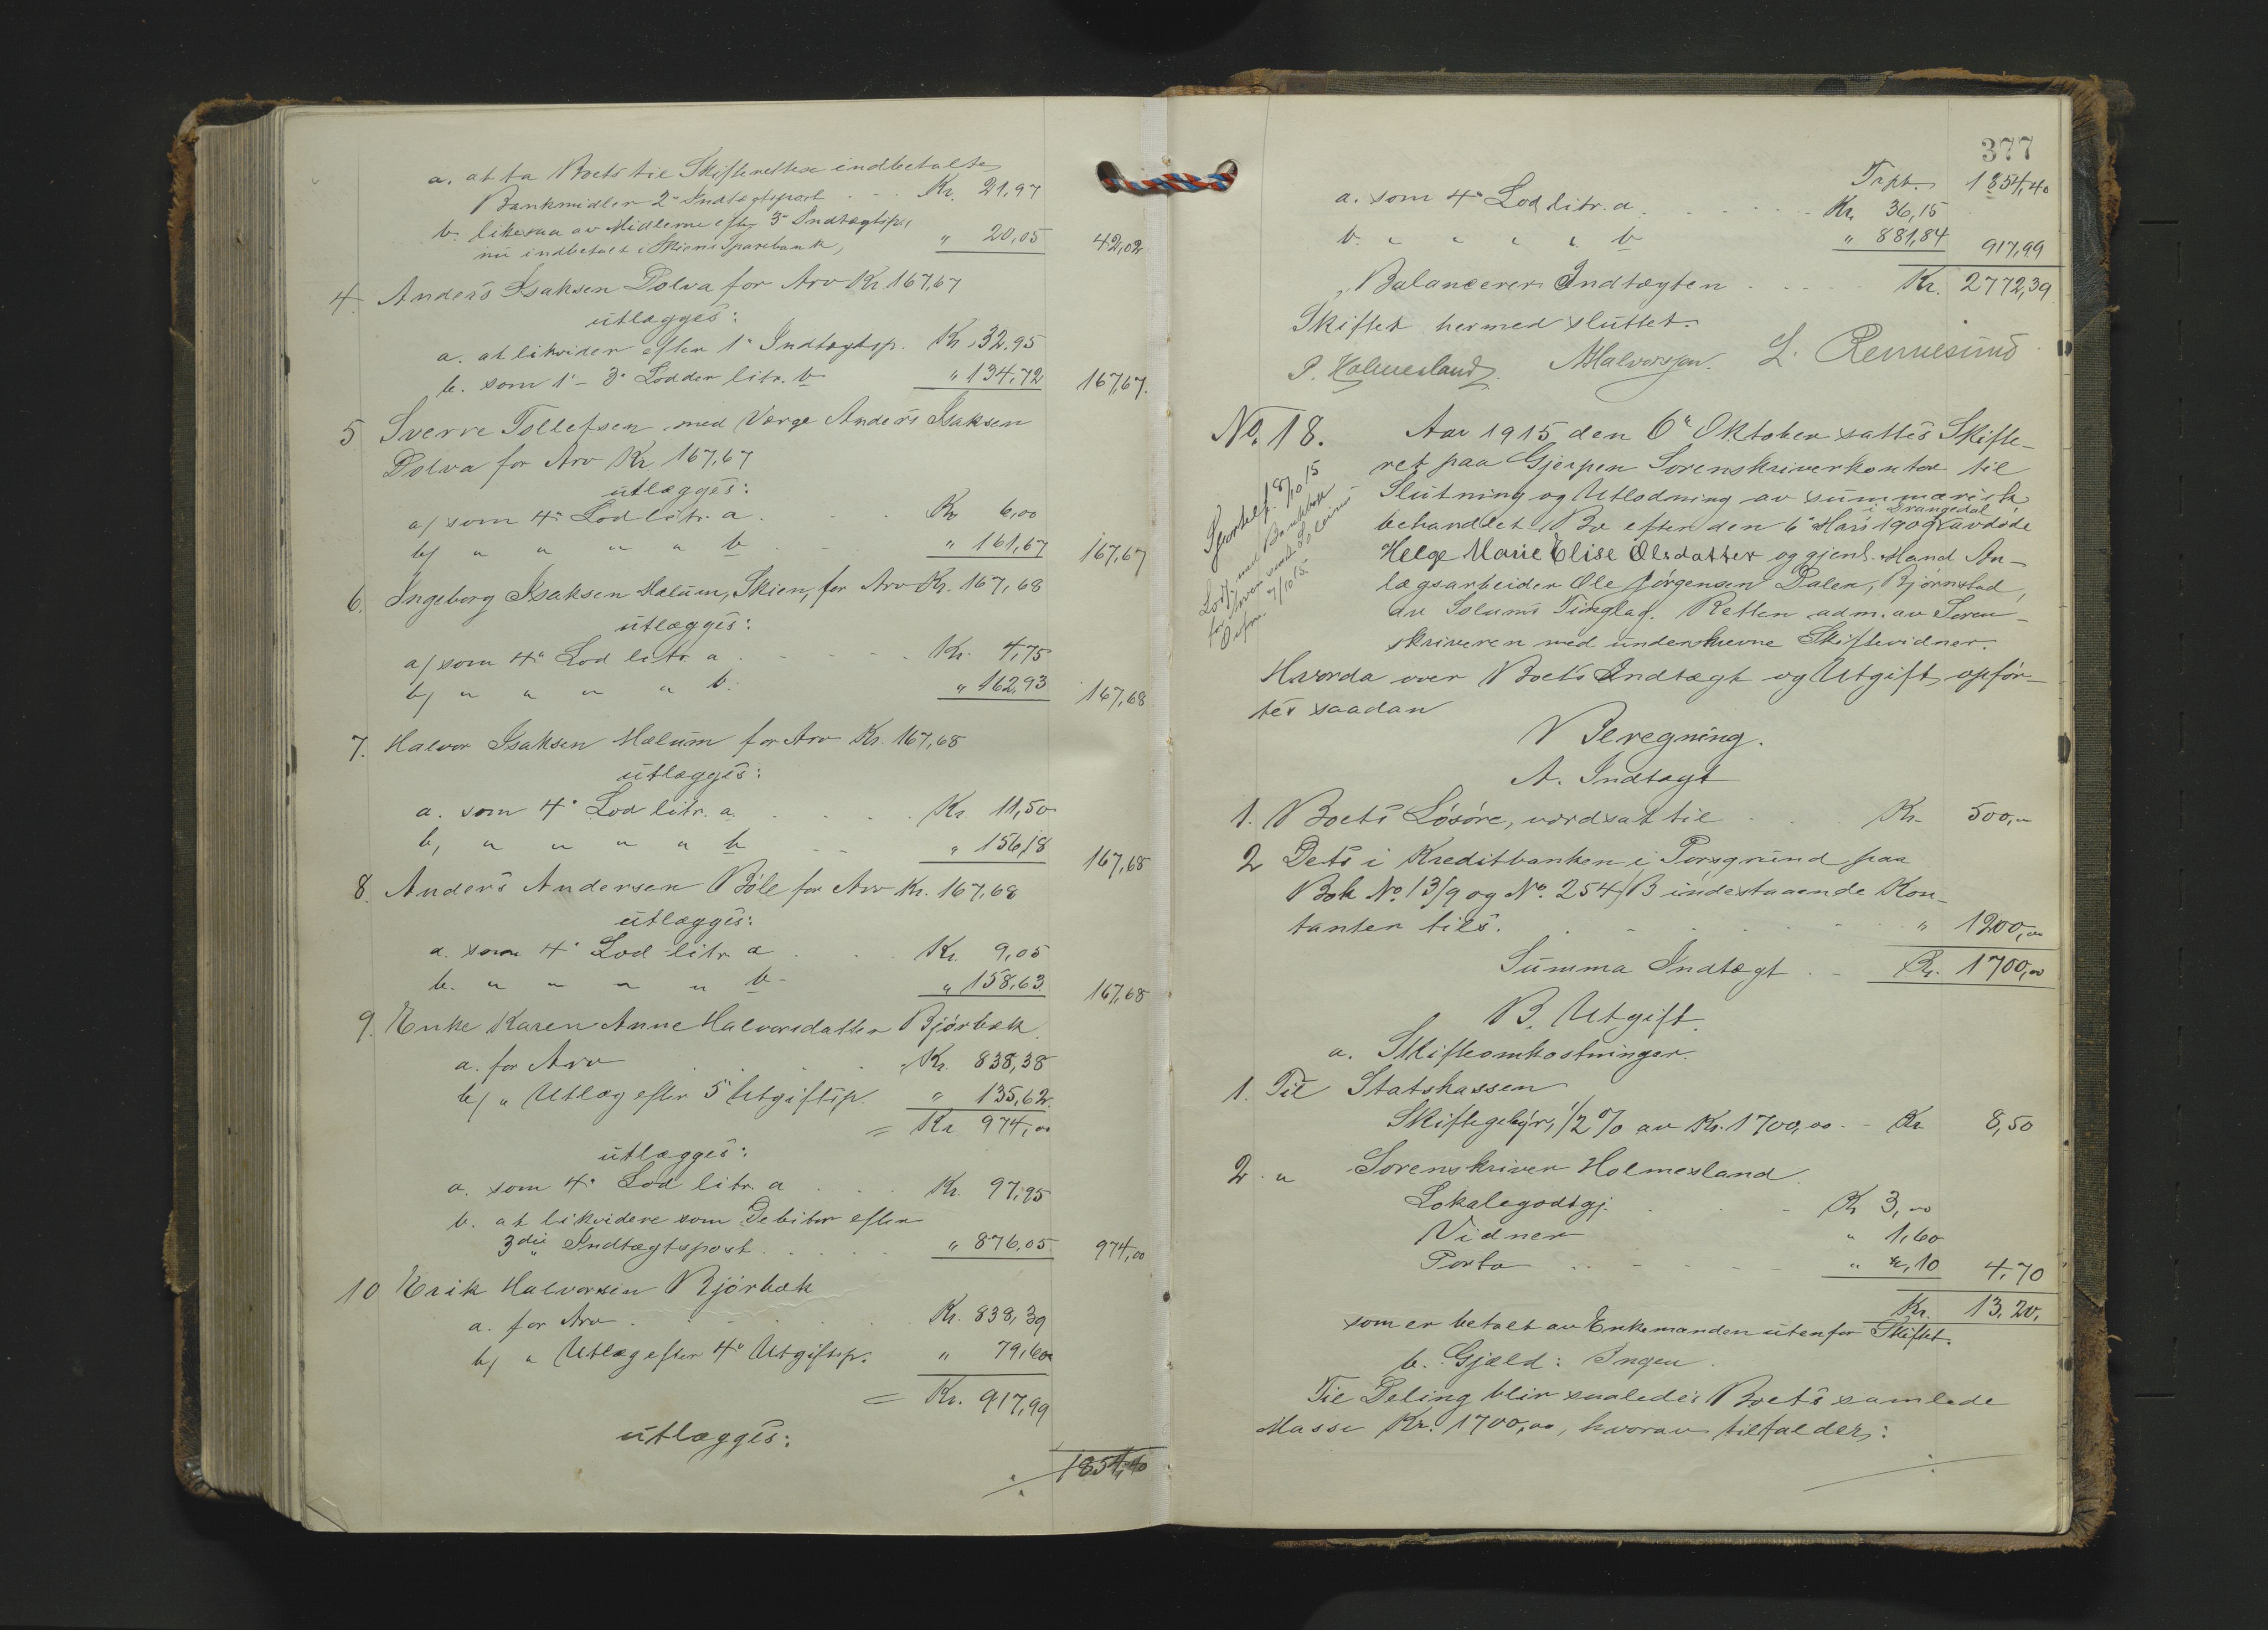 a. at ta Boets til Skifteretten indbetalte
Bankmidler 2' Indtægtspost - - Kr. 21,97
b. likesaa av Midlerne efter 3' Indtægtsp.,
nu indbetalt i Skiens Sparebank, " 20,05 42,02
4. Anders Isaksen Dolva for Arv Kr 167,67
utlægges:
a. at likvidere efter 1' Indtægtsp. Kr. 32,95
b. som 1' - 3' Lodder litr. b " 134,72 167,67.
5 Sverre Tollefsen med Værge Anders Isaksen
Dolva for Arv Kr. 167,67
utlægges:
a/ som 4' Lod litr. a . . Kr 6,00
b/ " " " " b - - " 161,67 167,67
6. Ingeborg Isaksen Mælum, Skien, for Arv Kr. 167,68
utlægges:
a/ som 4' Lod litr a . - - - - Kr. 4,75
b/ " " " " b. " 162,93 167,68
7. Halvor Isaksen Mælum for Arv Kr. 167,68
utlægges:
a. som 4' Lod litr. a. . . . . Kr. 11,50
b, " " " " b - - " 156,18 167,68
8. Anders Andersen Bøle for Arv Kr. 167,68
utlægges:
a. som 4' Lod litr a . . . Kr. 9,05
b. " " " " b - " 158,63 167,68
9. Enke Karen Anne Halvorsdatter Bjørbæk
a. for Arv . . . Kr. 838,38
b/ " Utlæg efter 5' Utgiftsp. " 135,62.
= Kr 974,00
utlægges:
a. som 4' Lod litr. a . . . Kr. 97,95
b. at likvidere som Debitor efter
3die Indtægtspost . . . . . " 876,05 974,00
10 Erik Halvorsen Bjørbæk
a. for Arv . - . . . Kr. 838,39
b/ " Utlæg efter 4' Utgiftsp. " 79,60
= Kr. 917,99
utlægges:
1854,40
377
Trpt. 1854,40
a. som 4' Lod litr. a . - - - - Kr. 36,15
b. " " " " b " 881,84 917,99
Balancerer Indtægten - - - - Kr. 2772,39
Skiftet hermed sluttet.
P. Holmesland. AHalvorsen. L. Rennesund
No. 18. Aar 1915 den 6' Oktober sattes Skifte-
ret paa Gjerpen Sorenskriverkontor til
Slutning og Utlodning av summarisk
i Drangedal
behandlet Bo efter den 6' Mars 1909 avdøde
Helge Marie Elise Olsdatter og gjenl. Mand An-
lægsarbeider Ole Jørgensen Dalen, Bjørnstad,
av Solums Tinglag. Retten adm. av Soren-
skriveren med underskrevne Skiftevidner.
Hvorda over Boets Indtægt og Utgift opfør-
tes saadan
Beregning.
A. Indtægt
1. Boets Løsøre, værdsat til - . . Kr. 500,"
2 Dets i Kreditbanken i Porsgrund paa
Bok No. 13/9 og No. 254/B indestaaende Kon-
tanter tils. . - . - - - " 1200,00
Summa Indtægt . - Kr. 1700,00
B. Utgift.
a. Skifteomkostninger.
1. Til Statskassen
Skiftegebyr, 1/2 % av Kr. 1700,00. - Kr 8,50
2. " Sorenskriver Holmesland.
Lokalegodtgj. . . - Kr 3,00
Vidner " 1,60
Porto - - - - - - " ",10 4,70
Kr. 13,20.
som er betalt av Enkemanden utenfor Skiftet.
b. Gjæld: Ingen.
Til Deling blir saaledes Boets samlede
Masse Kr. 1700,00, hvorav tilfalder: